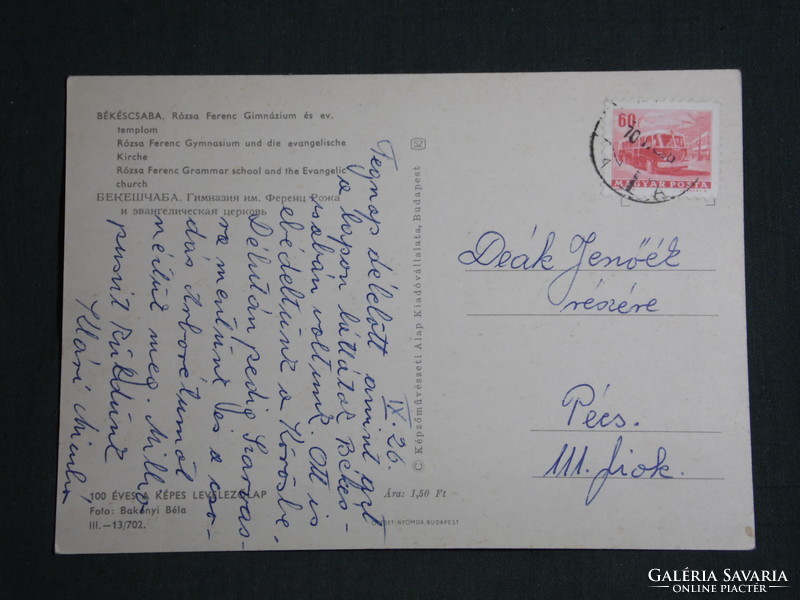 BÉKÉSCSABA. Rózsa Ferenc Gimnázium és ev.
templom
Rózsa Ferenc Gymnasium und die evangelische
Kirche
Rózsa Ferenc Grammar school and the Evangelic
church
БЕКЕШЧАБА. Гимназия им. Ференц Рожа
и эвангелическая церковь
IX. 26.
Tegnap délelőtt amint azt
a lapon látjátok Békés-
csabán voltunk. Ott is
ebédeltünk a Körösbe.
Délután pedig Szarvas-
ra mentünk és a cso-
dás Arborétumot
néztük meg. Millió
puszit küldünk
Klári
100 ÉVES A KÉPES LEVELEZŐLAP
Foto: Bakonyi Béla
III.—13/702.
Ára: 1,50 Ft
OFFSET-NYOMDA, BUDAPEST
© Képzőművészeti Alap Kiadóvállalata, Budapest
60f
MAGYAR POSTA
Deák Jenőék
részére
Pécs.
111. fiók.
GALÉRIA SAVARIA
ONLINE PIACTÉR